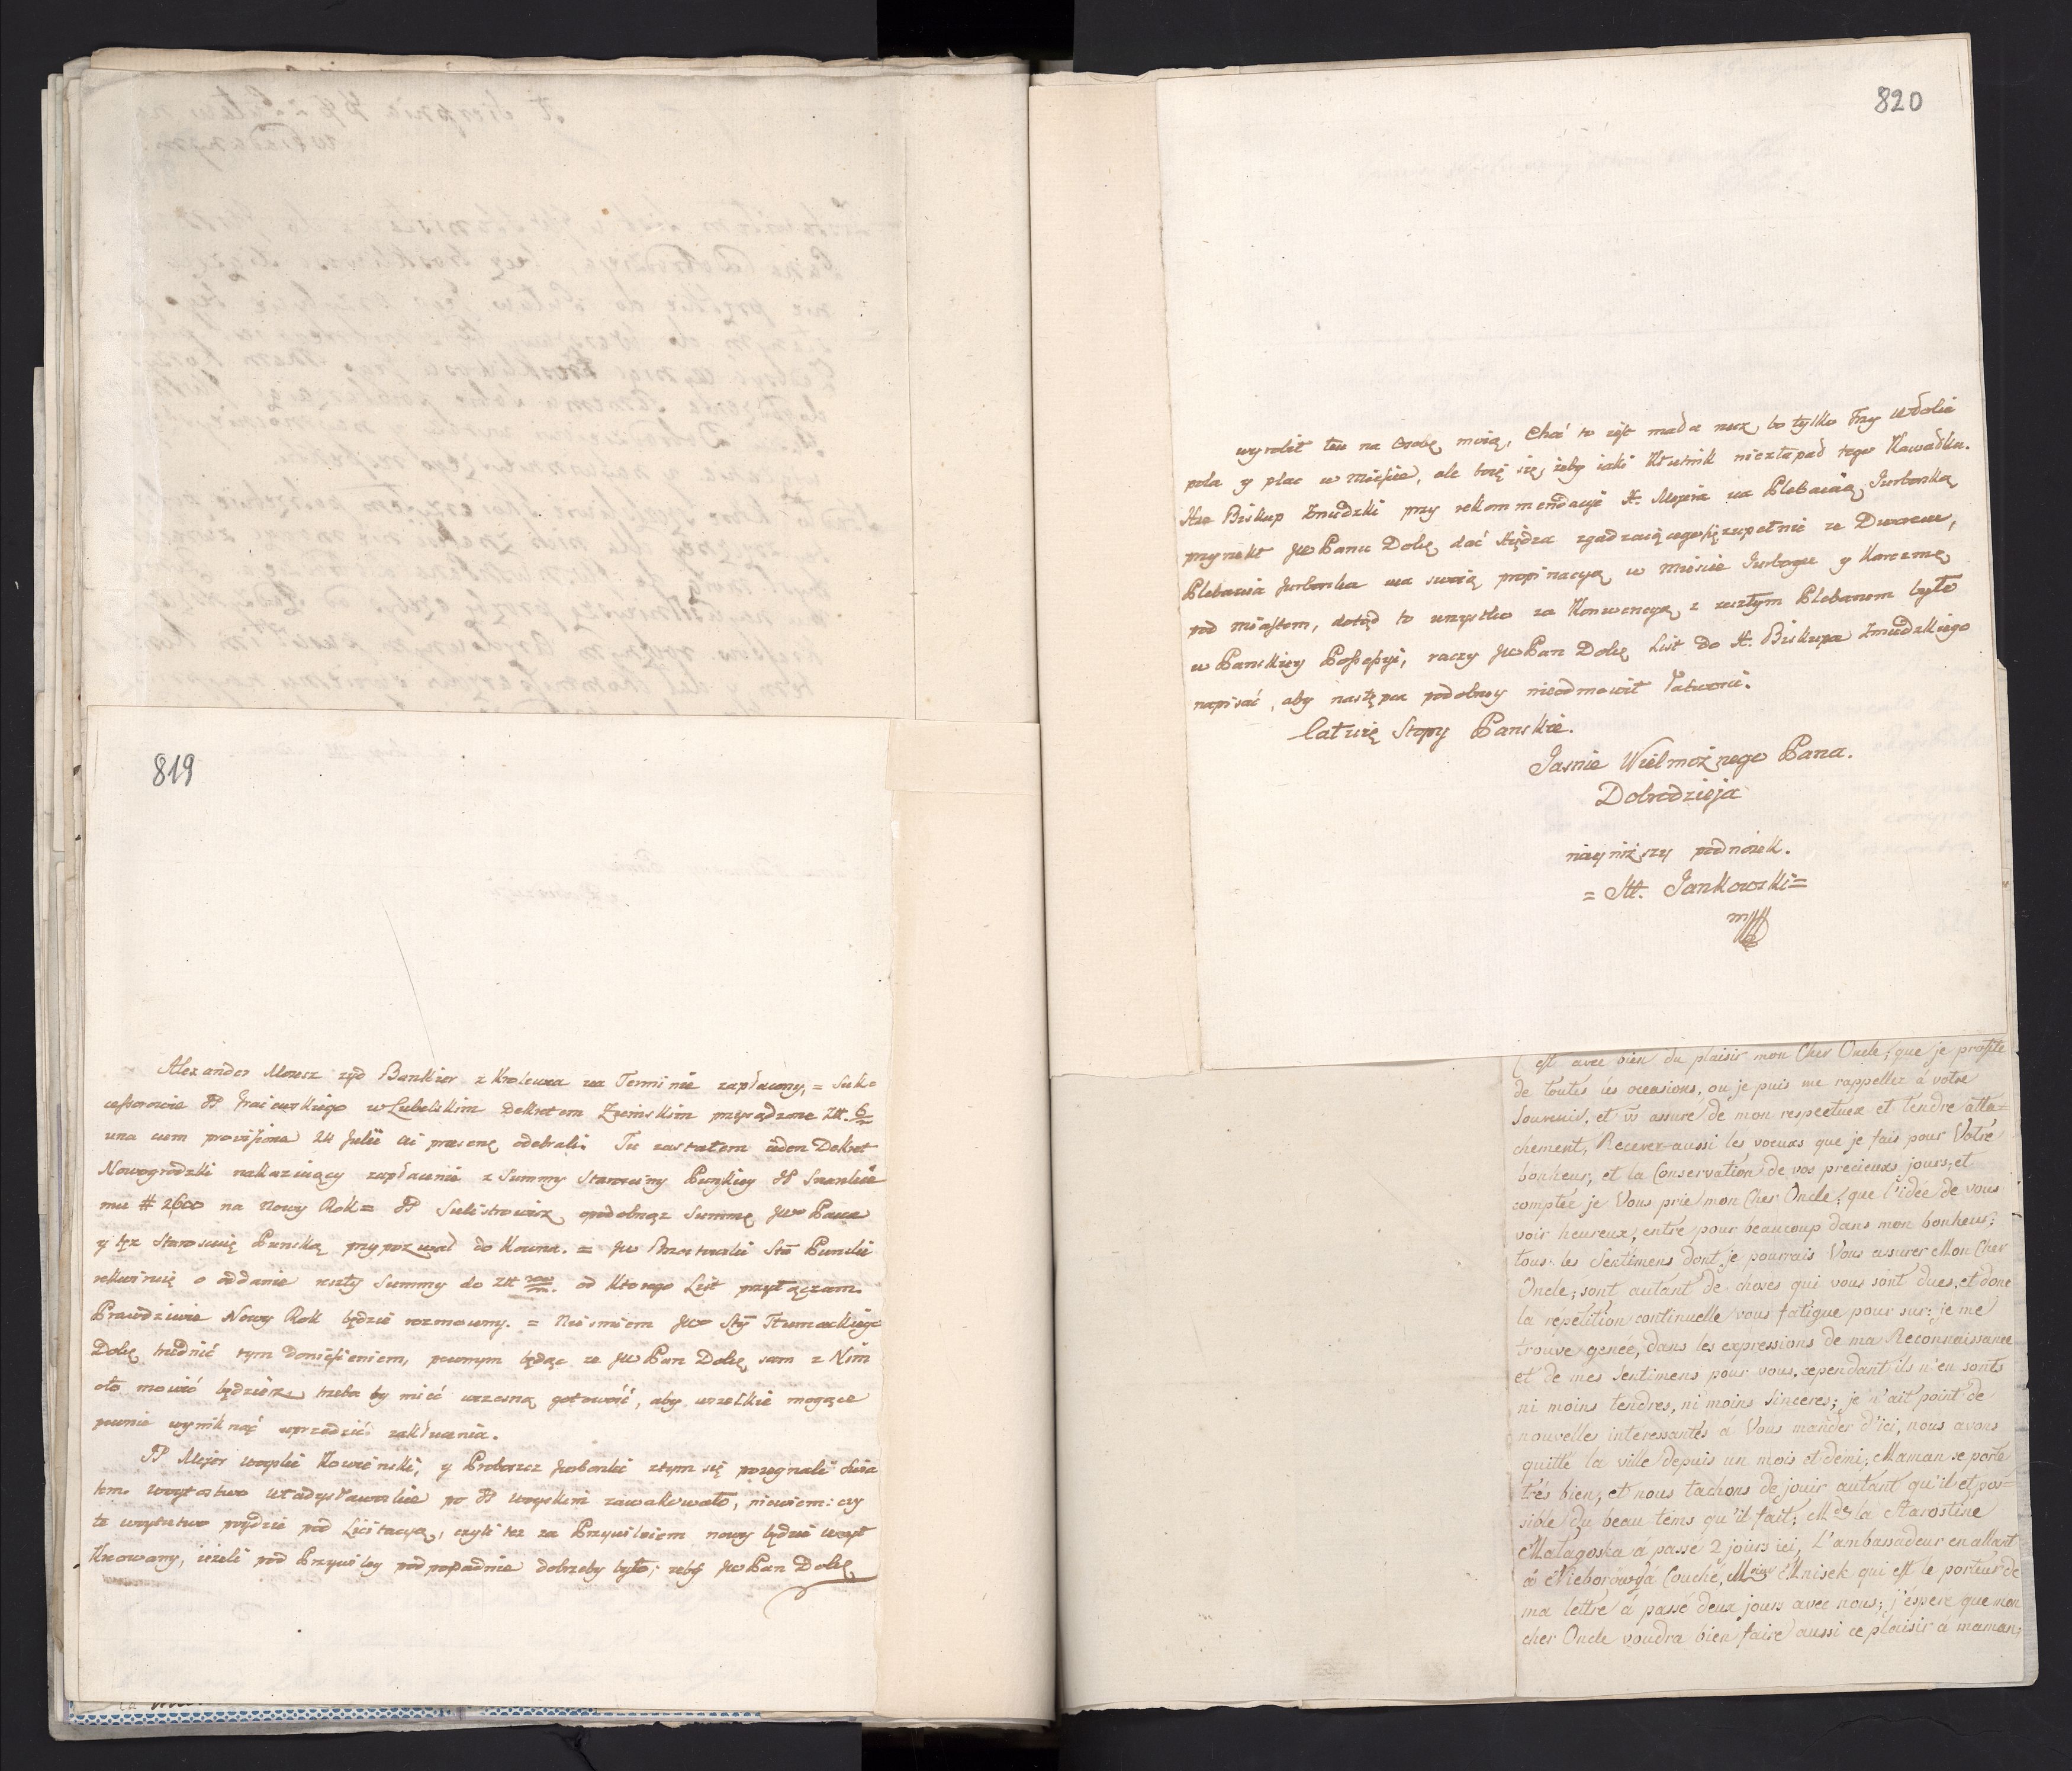 819
Alexander Mozesz zyd Bankier z Krolewca na Terminie zapłacony, = Suk=
cessorowie JP Grajewskiego w Lubelskim Dekretem Ziemskim przysądzone Złł. 6/m
una cum provisione 24 Julii ai praesens odebrali. Tu zastałem ieden Dekret
Nowogrodzki nakazuiący zapłacenie z Summy Starosciny Puńskiey JP
mu # 2600 na Nowy Rok = JP Sulistrowicz Summę JW Pana
y tęz Staroscinę Puńską przypozwał do Kowna. = JW Brzostowski Stta Puński
rekwiruię o oddanie reszty Summy do Złł od ktorego List przyłączam.
Prawdziwie Nowy Rok będzie rozmowny. = Niesmiem JW Sty Tłumackiego
Dobę trudnić tym doniesieniem, pewnym będąc ze JW Pan Dobę sam z Nim
oto mowić będziesz trzeba by mieć wczesną gotowość, aby wszelkie mogące
pewnie wyniknąć uprzedzić zakłucenia.
JP Mejer woyski Kowienski, y Proboszcz Jurborski ztym się pozegnali swia
tem. woytostwo władysławowskie po JP woyskim zawakowało, niewiem: czy
te woytostwo poydzie pod Licitacyą, czyli tez za Przywileiem nowy będzie woyt
Kreowany, ieżeli pod Przywiley podpopadnie dobrzeby było; zeby JW Pan Dobę
820
wyrobił tu na Osobę moią, Choć to iest mała rzecz, bo tylko trzy włoki
pola y plac w Mieście, ale boię się, żeby iaki Kłutnik niezłapał tego Kawałka.
Xże Biskup Zmudzki przy rekommendacyi X. Mejera na Plebanią Jurborską
przyrzekł JW Panu Dobę dać Xiędza zgadzaiącegosię zupełnie ze Dworem,
Plebania Jurborska ma swoią propinacyą w mieście Jurborgu y Karczmę
pod Miastem, dotąd to wszystko za Konwencyą z zeszłym Plebanem było
w Pańskiey Possessyi, raczy JW Pan Dobę List do X. Biskupa Zmudzkiego
napisać, aby następca podobney nieodmowił
Całuię Stopy Pańskie.
Jasnie Wielmożnego Pana.
Dobrodzieja
nayniższy podnożek.
= M. Jankowski =
C'est avec bien du plaisir mon Cher Oncle, que je profite
de toutes les occasions, ou je puis me rappeller à votre
Souvenir, et vs assure de mon respectuex et tendre atta=
chement, Recever aussi les voeuxs que je fais pour Votre
bonheur, et la Conservation de vos precieuxs jours, et
comptée je Vous prie mon Cher Oncle, que l'idée de vous
voir heureux, entre pour beaucoup dans mon bonheur;
tous les Sentimens dont je pourrais Vous assurer Mon Cher
Oncle, sont autant de choses qui vous sont dues, et donc
la répétition continuelle vous fatigue pour sur; je me
trouve genée, dans les expressions de ma Reconnaissance
et de mes Sentimens pour vous, cependant ils n'en sonts
ni moins tendres, ni moins sinceres; je n'ait point de
nouvelles intéressantes à Vous mander d'ici, nous avons
quitté la ville depuis un mois et demi; Maman se porte
très bien, et nous tachons de jouir autant qu'il et pos=
sible du beau tems qu'il fait; Mde la Starostine
Malagoska a passé 2 jours ici, L'ambassadeur en allant
à Nieborow y à Couché, Mnisek qui est le porteur de
ma lettre à passé deux jours avec nous; j'espere que mon
cher Oncle voudra bien faire aussi ce plaisir à maman,